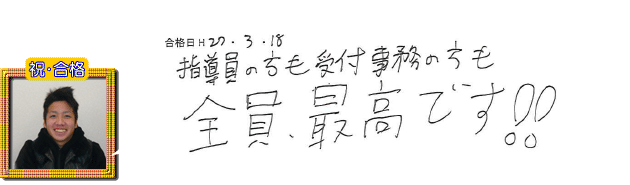 祝・合格
合格日 H27・3・18
指導員の, 方も受付事務の方も
全員、最高です!!